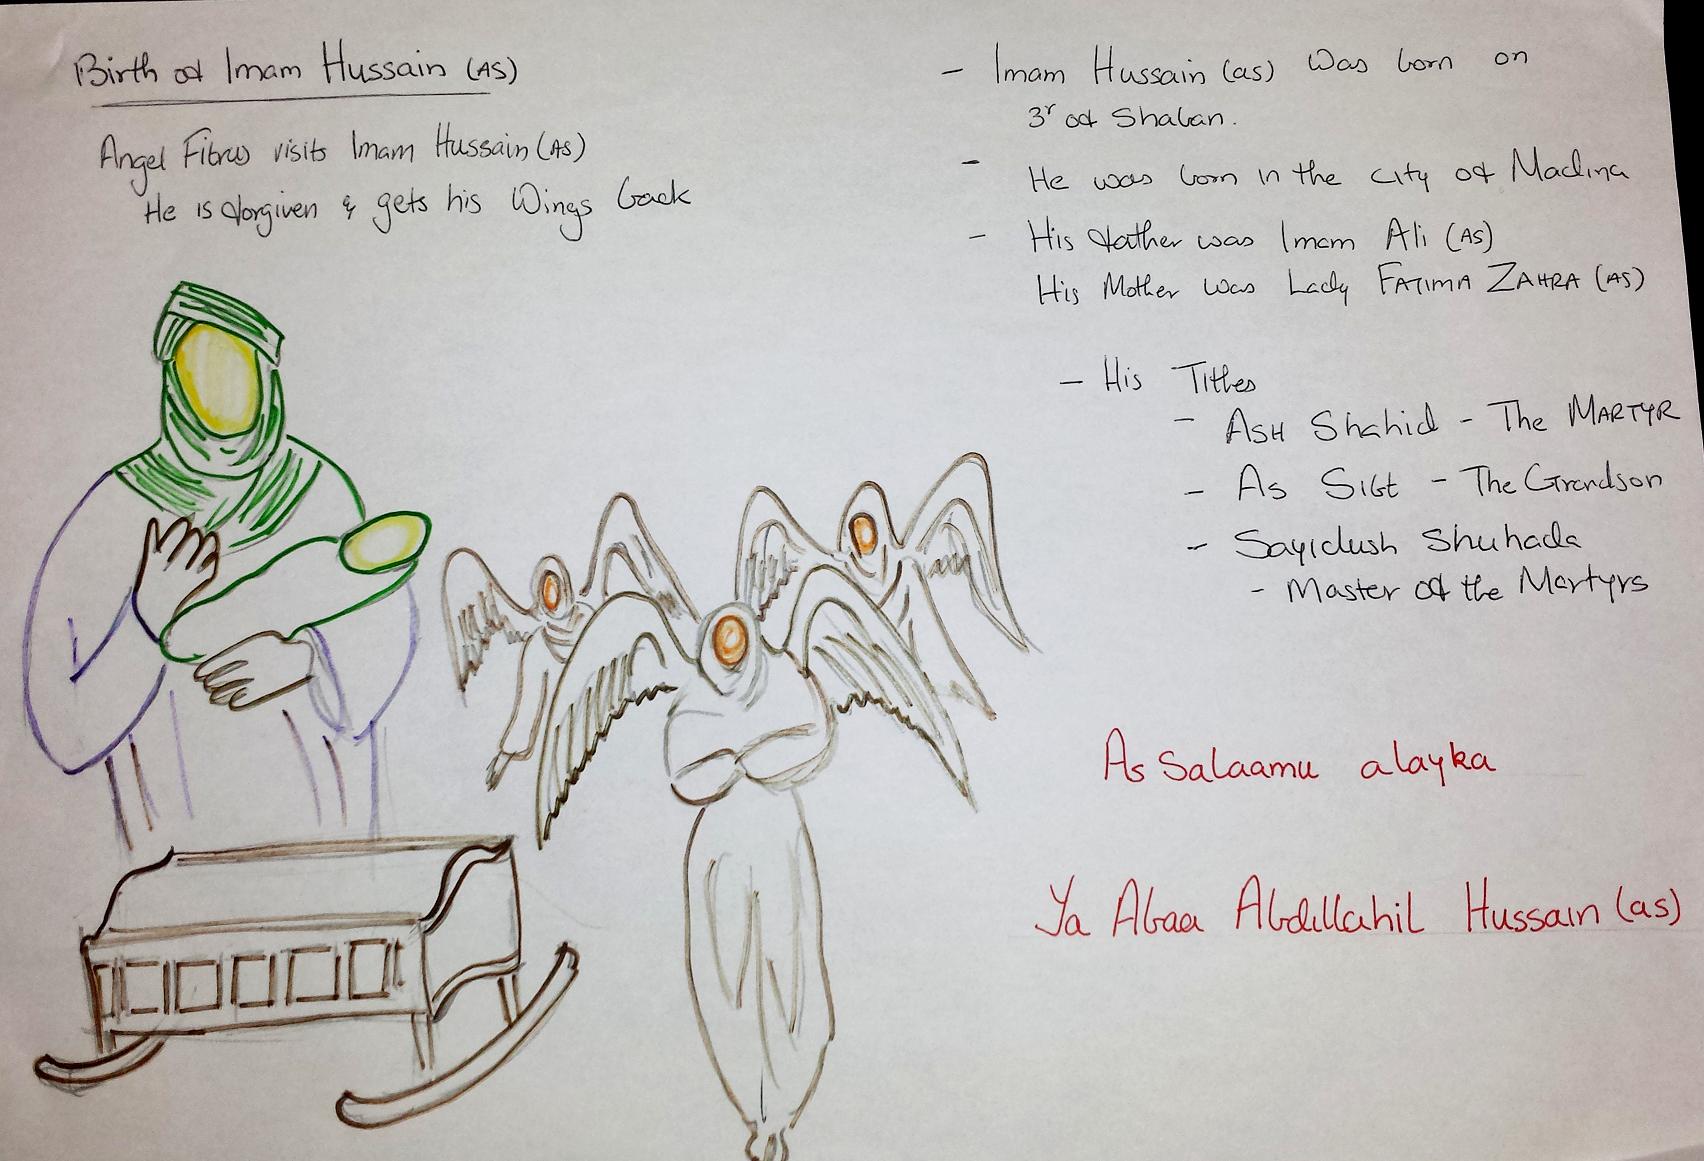 Birth of Imam Hussain (AS)
Angel Fitrus visits Imam Hussain (AS)
He is forgiven & gets his Wings back
- Imam Hussain (as) was born on
3r of Shaban.
- He was born in the city of Madina
- His father was Imam Ali (AS)
His Mother was Lady FATIMA ZAHRA (AS)
- His Titles
- ASH Shahid - The MARTYR
- As Sibt - The Grandson
- Sayidush Shuhada
- Master of the Martyrs
As Salaamu alayka
Ya Abaa Abdillahil Hussain (as)